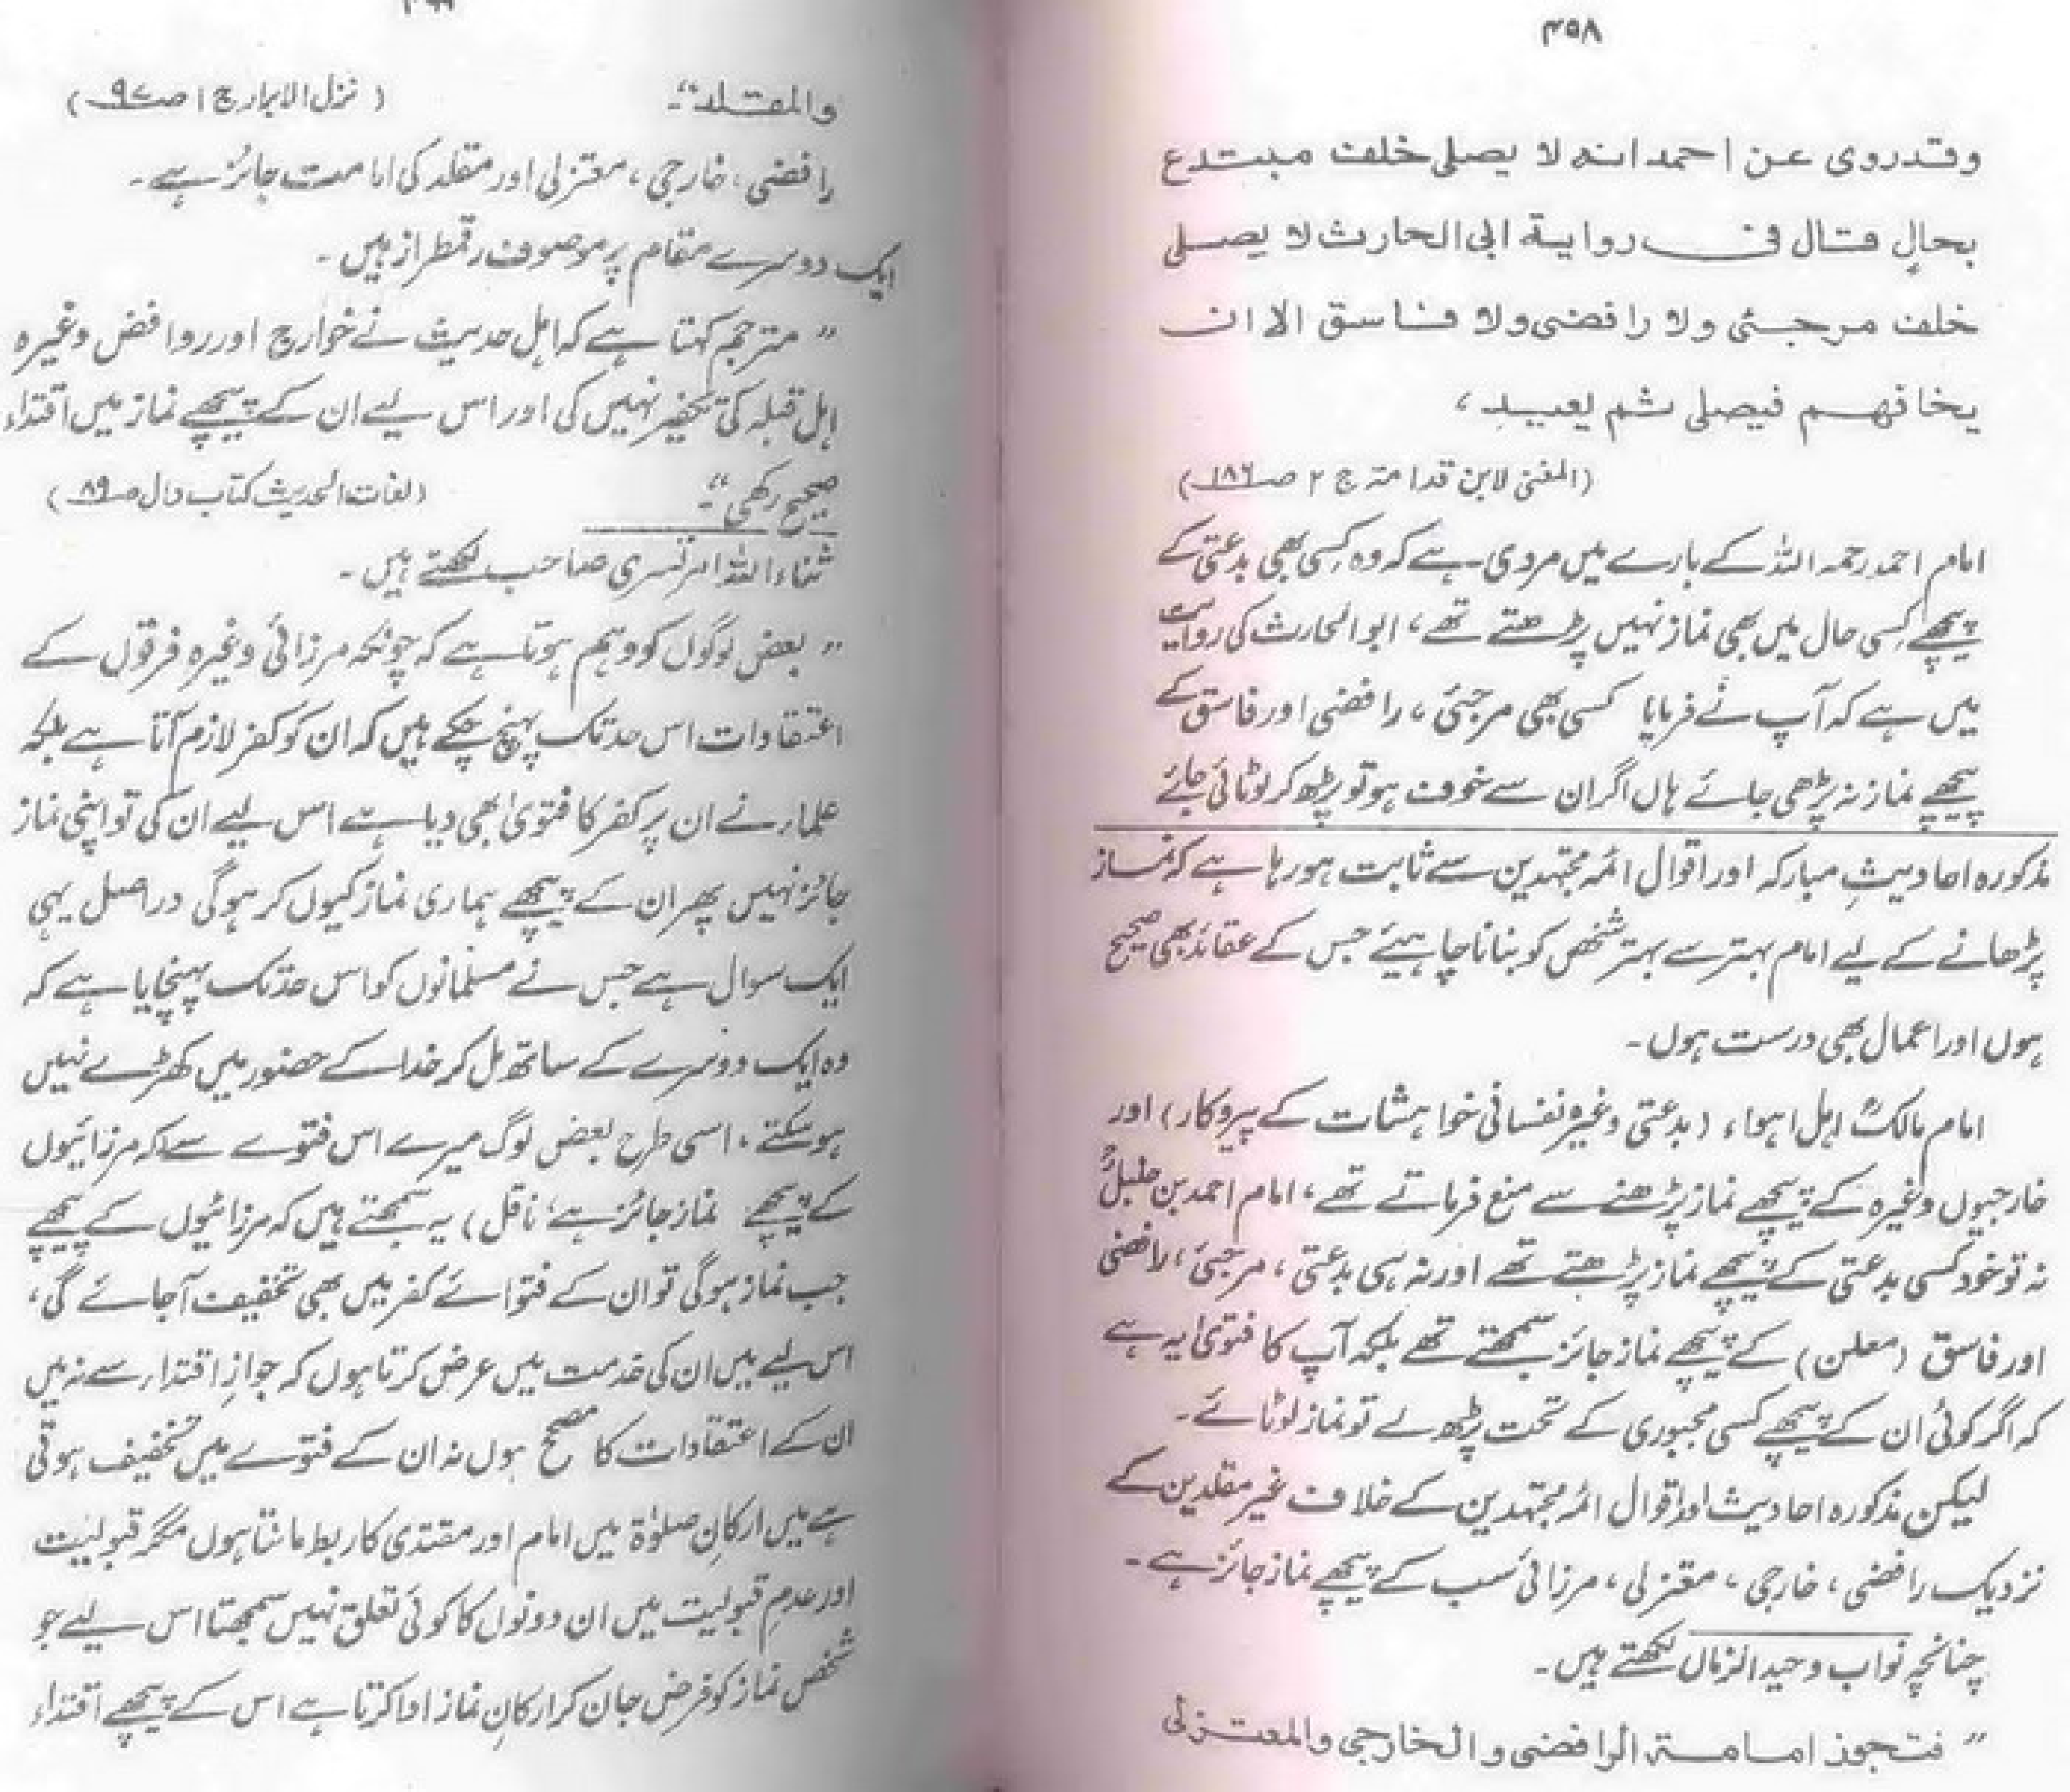 ۴۵۸
وقد روی عن احمد انہ لا یصلی خلف مبتدع
بحالٍ قال فی روایۃ ابی الحارث لا یصلی
خلف مرجئی ولا رافضی ولا فاسق الا ان
یخافھم فیصلی ثم یعید،
(المغنی لابن قدامۃ ج ۲ صـ۱۸۶)
امام احمد رحمہ اللہ کے بارے میں مروی ہے کہ وہ کسی بھی بدعتی کے
پیچھے کسی حال میں بھی نماز نہیں پڑھتے تھے، ابوالحارث کی روایت
میں ہے کہ آپ نے فرمایا کسی بھی مرجئی، رافضی اور فاسق کے
پیچھے نماز نہ پڑھی جائے ہاں اگر ان سے خوف ہو تو پڑھ کر لوٹائی جائے
مذکورہ احادیثِ مبارکہ اور اقوال ائمہ مجتہدین سے ثابت ہو رہا ہے کہ نماز
پڑھانے کے لیے امام بہتر سے بہتر شخص کو بنانا چاہیئے جس کے عقائد بھی صحیح
ہوں اور اعمال بھی درست ہوں۔
امام مالکؒ اہل اہواء، (بدعتی وغیرہ نفسانی خواہشات کے پیروکار) اور
خارجیوں وغیرہ کے پیچھے نماز پڑھنے سے منع فرماتے تھے، امام احمد بن حنبلؒ
نہ تو خود کسی بدعتی کے پیچھے نماز پڑھتے تھے اور نہ ہی بدعتی، مرجئی، رافضی
اور فاسق (معلن) کے پیچھے نماز جائز سمجھتے تھے بلکہ آپ کا فتویٰ یہ ہے
کہ اگر کوئی ان کے پیچھے کسی مجبوری کے تحت پڑھ لے تو نماز لوٹائے۔
لیکن مذکورہ احادیث اور اقوال ائمہ مجتہدین کے خلاف غیر مقلدین کے
نزدیک رافضی، خارجی، معتزلی، مرزائی سب کے پیچھے نماز جائز ہے۔
چنانچہ نواب وحید الزماں لکھتے ہیں۔
" فتجوز امامۃ الرافضی والخارجی والمعتزلی
والمقلد"۔ (نزل الابرار ج ۱ صـ۹۷)
رافضی، خارجی، معتزلی اور مقلد کی امامت جائز ہے۔
ایک دوسرے مقام پر موصوف رقمطراز ہیں۔
" مترجم کہتا ہے کہ اہل حدیث نے خوارج اور روافض وغیرہ
اہل قبلہ کی تکفیر نہیں کی اور اس لیے ان کے پیچھے نماز میں اقتداء
صحیح رکھی"۔ (لغات الحدیث کتاب دال صـ۸۹)
ثناء اللہ امرتسری صاحب لکھتے ہیں۔
" بعض لوگوں کو وہم ہوتا ہے کہ چونکہ مرزائی وغیرہ فرقوں کے
اعتقادات اس حد تک پہنچ چکے ہیں کہ ان کو کفر لازم آتا ہے بلکہ
علماء نے ان پر کفر کا فتویٰ بھی دیا ہے اس لیے ان کی تو اپنی نماز
جائز نہیں پھر ان کے پیچھے ہماری نماز کیوں کر ہوگی دراصل یہی
ایک سوال ہے جس نے مسلمانوں کو اس حد تک پہنچایا ہے کہ
وہ ایک دوسرے کے ساتھ مل کر خدا کے حضور میں کھڑے نہیں
ہوسکتے، اسی طرح بعض لوگ میرے اس فتوے سے (کہ مرزائیوں
کے پیچھے نماز جائز ہے، ناقل) یہ سمجھتے ہیں کہ مرزائیوں کے پیچھے
جب نماز ہوگی تو ان کے فتوائے کفر میں بھی تخفیف آجائے گی،
اس لیے میں ان کی خدمت میں عرض کرتا ہوں کہ جوازِ اقتداء سے نہ میں
ان کے اعتقادات کا مصحح ہوں نہ ان کے فتوے میں تخفیف ہوتی
ہے میں ارکانِ صلوٰۃ میں امام اور مقتدی کا ربط مانتا ہوں مگر قبولیت
اور عدمِ قبولیت میں ان دونوں کا کوئی تعلق نہیں سمجھتا اس لیے جو
شخص نماز کو فرض جان کر ارکانِ نماز ادا کرتا ہے اس کے پیچھے اقتداء